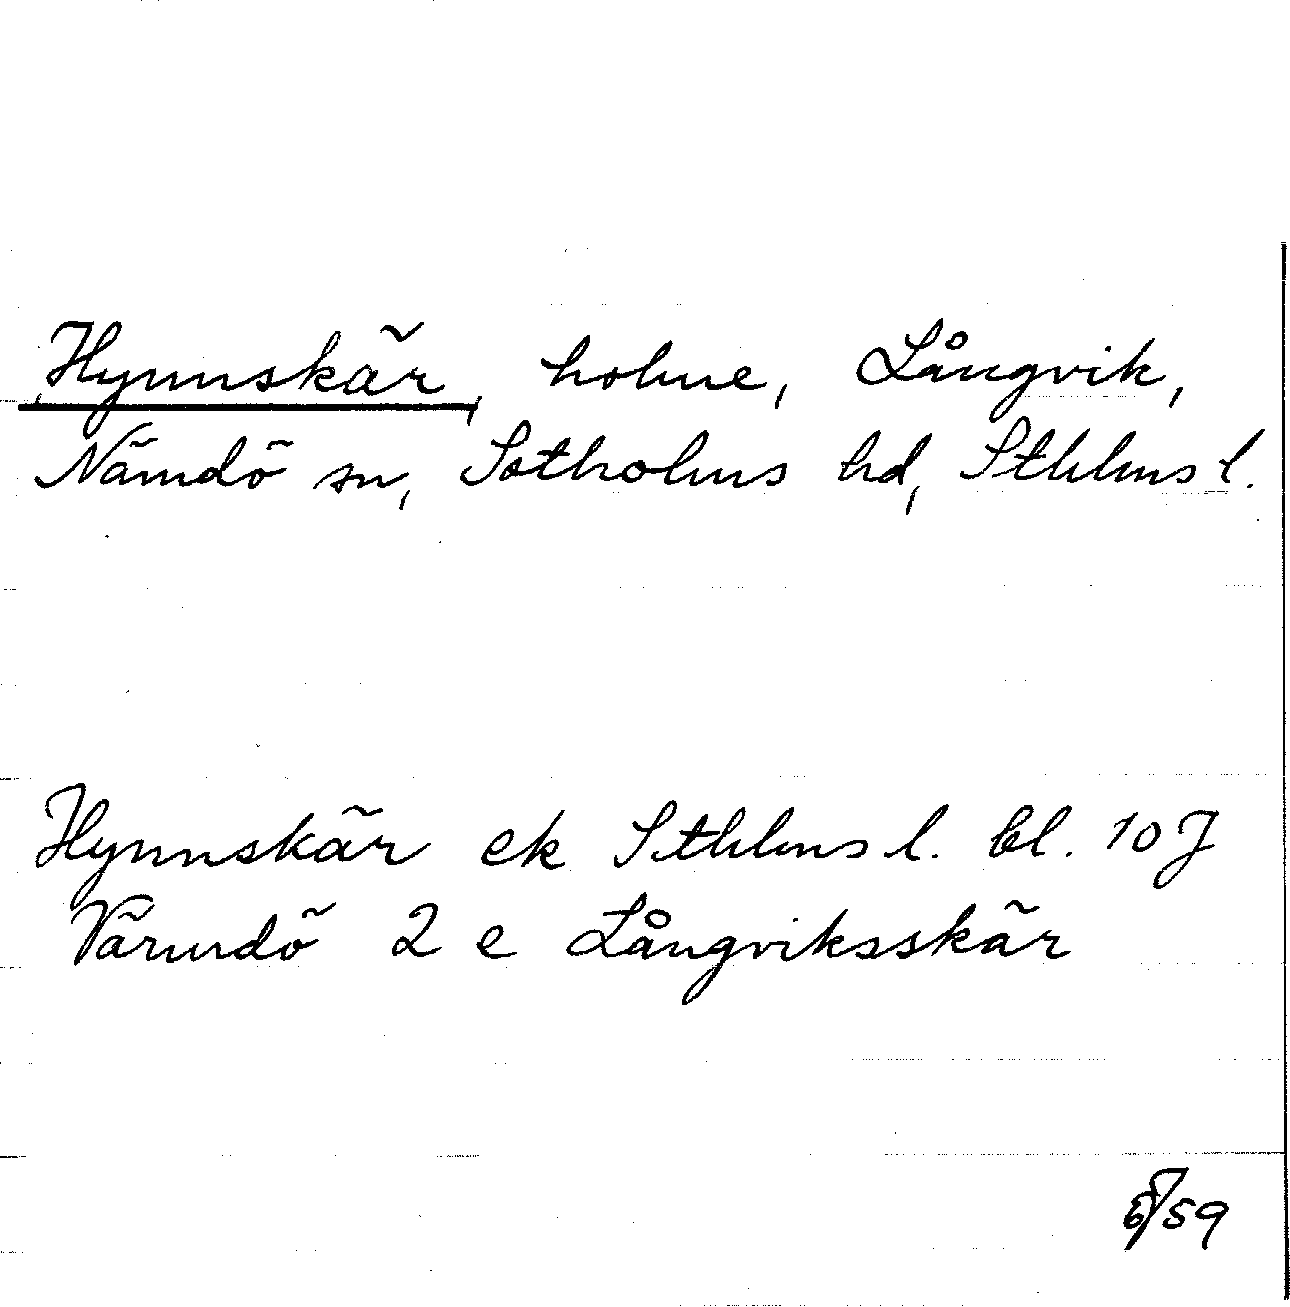 Hynnskär, holme, Långvik,
Nämdö sn, Sotholms hd, Sthlms l.
Hynnskär ek Sthlms l. bl. 10 J
Värmdö 2 e Långviksskär
/59